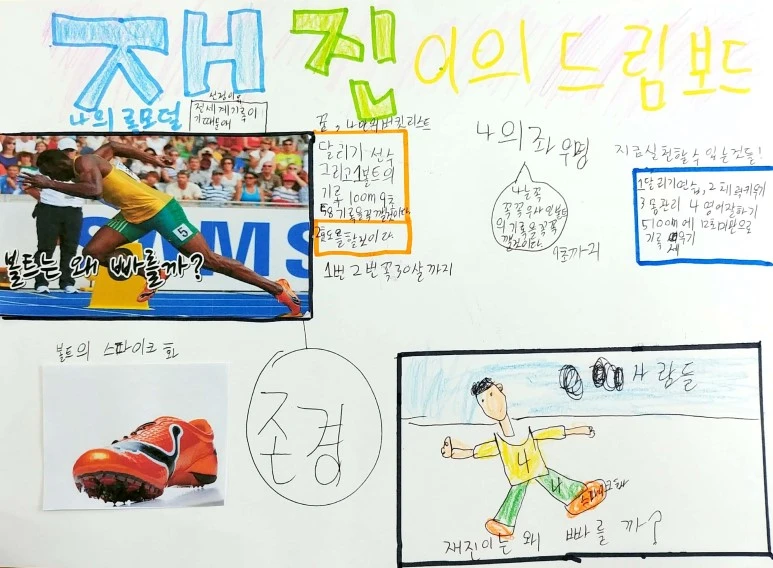 재진이의 드림보드
나의 롤모델
선정이유
전세계기록이
기때문에
꿈, 나의 버킷리스트
달리기 선수
그리고 볼트의
기록 100m 9초
58 기록을 꼭 깰것이다
1번 2번 꼭 30살까지
나의 좌우명
나는 꼭
꼭꼭 우사인볼트
의 기록을 꼭꼭
깰것이다
9초까지
지금 실천할 수 있는것들!
1달리기연습, 2체력키우기
3몸관리 4 영어잘하기
5100m에 12초미만으로
기록 세우기
SAMS
5
볼트는 왜 빠를까?
볼트의 스파이크 화
존경
사람들
4
나
스파이크화
재진이는 왜 빠를까?